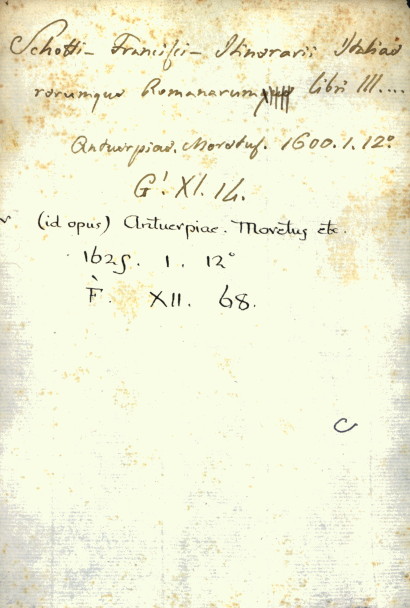 Schotti Francisci Itinerarii Italiae
rerumque Romanarum libri III....
Antuerpiae. Moretus. 1600. 1. 12°
G'. XI. 14.
(id opus) Antuerpiae. Moretus etc.
1625. 1. 12°
F. XII. 68.
C